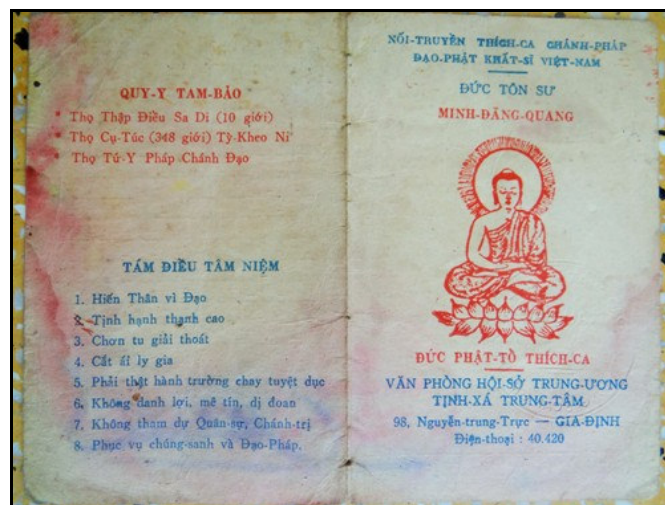 QUY-Y TAM-BẢO
* Thọ Thập Điều Sa Di (10 giới)
* Thọ Cụ-Túc (348 giới) Tỳ-Kheo Ni
* Thọ Tứ-Y Pháp Chánh Đạo
TÁM ĐIỀU TÂM NIỆM
1. Hiến Thân vì Đạo
2. Tịnh hạnh thanh cao
3. Chơn tu giải thoát
4. Cắt ái ly gia
5. Phải thật hành trường chay tuyệt dục
6. Không danh lợi, mê tín, dị đoan
7. Không tham dự Quân-sự, Chánh-trị
8. Phục vụ chúng-sanh và Đạo-Pháp.
NỐI-TRUYỀN THÍCH-CA CHÁNH-PHÁP
ĐẠO-PHẬT KHẤT-SĨ VIỆT-NAM
ĐỨC TÔN SƯ
MINH-ĐĂNG-QUANG
ĐỨC PHẬT-TỔ THÍCH-CA
VĂN PHÒNG HỘI-SỞ TRUNG-ƯƠNG
TỊNH-XÁ TRUNG-TÂM
98, Nguyễn-trung-Trực — GIA-ĐỊNH
Điện-thoại : 40.420